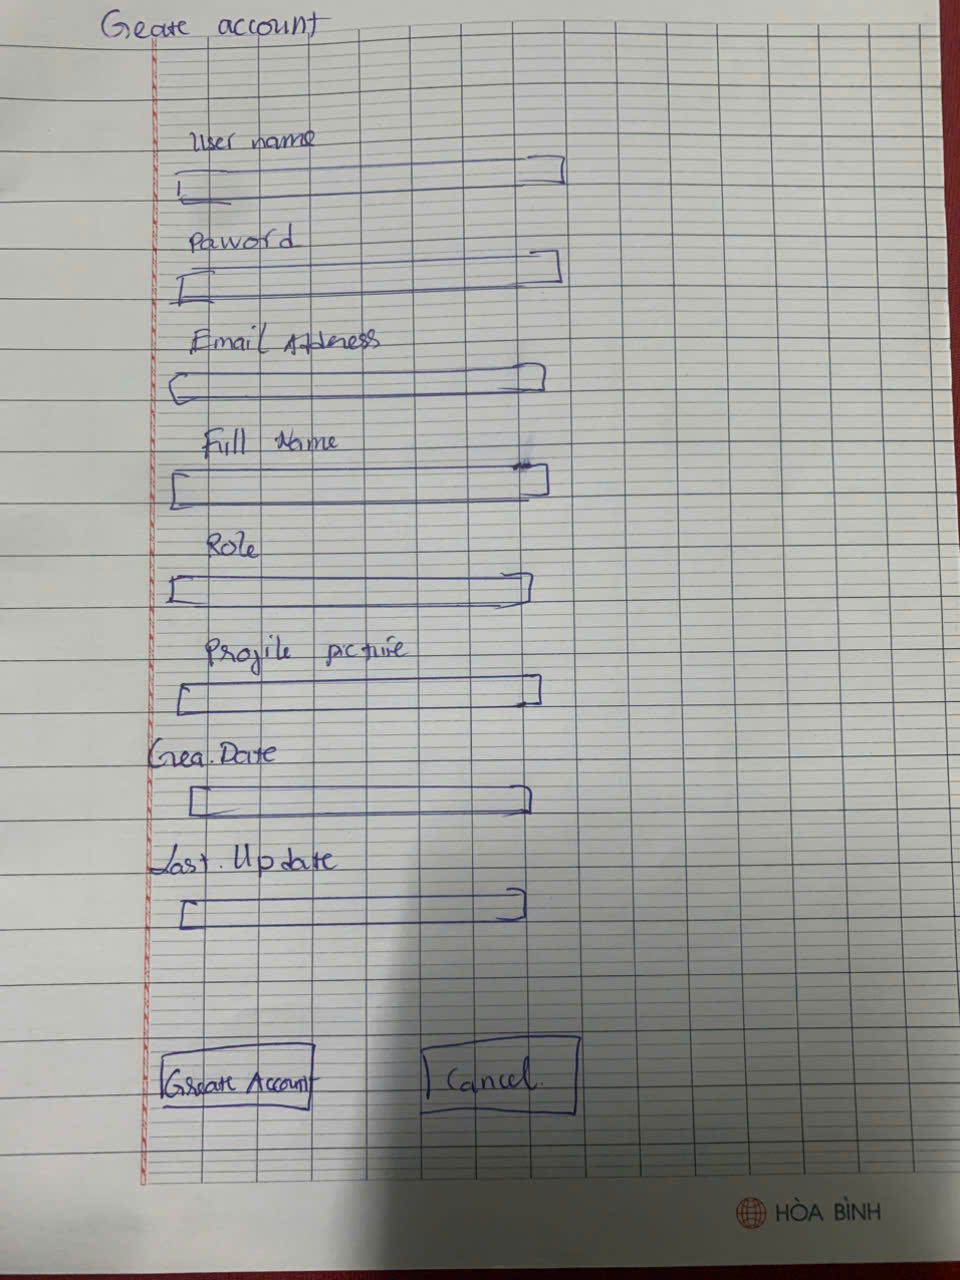 Create account
User name
Paword
Email Address
Full Name
Role
Profile picture
Crea.Date
Last.Update
Create Account
Cancel.
HÒA BÌNH